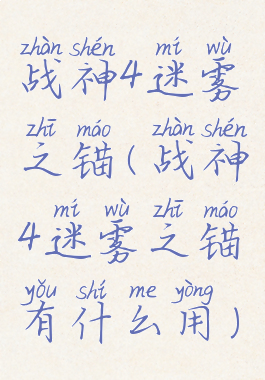 zhàn shén mí wù
战神4迷雾
zhī máo zhàn shén
之锚(战神
mí wù zhī máo
4迷雾之锚
yǒu shí me yòng
有什么用)